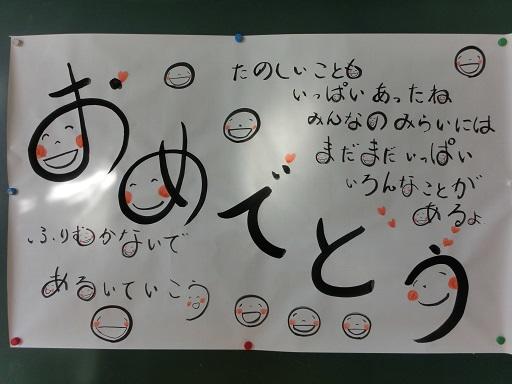 おめでとう
たのしいことも
いっぱいあったね
みんなのみらいには
まだまだいっぱい
いろんなことが
あるよ
ふりむかないで
あるいていこう